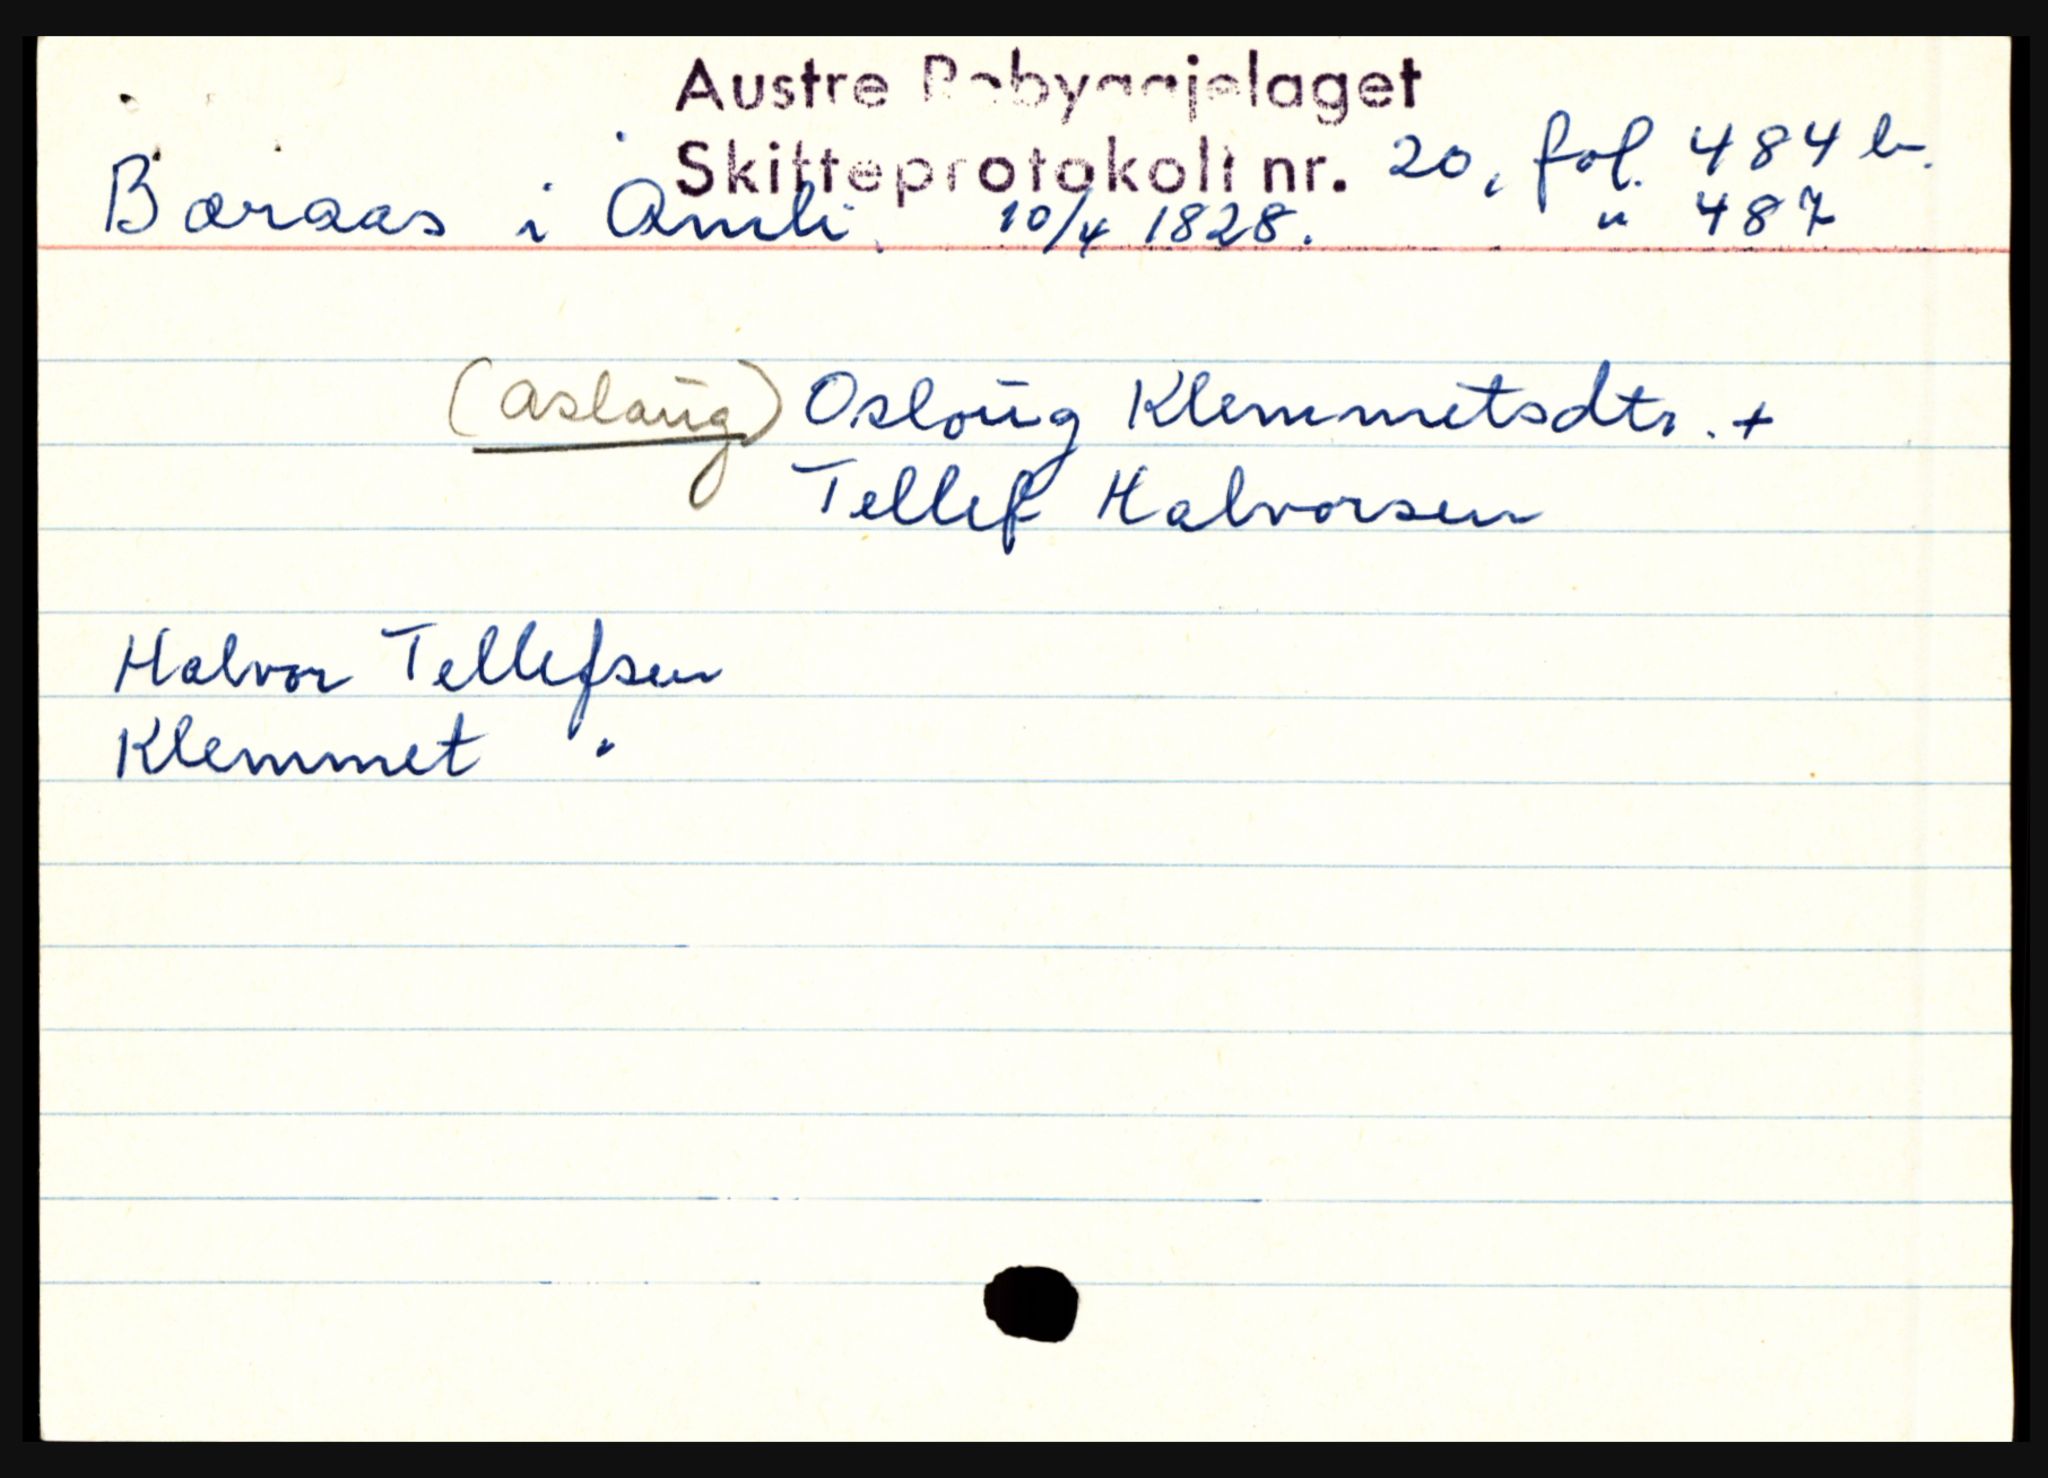 Austre Rabyggjelaget
Skifteprotokoll nr. 20, fol. 484 b.
Baraas i Åmli. 10/4 1828. " 487
(Aslaüg) Osloüg Klemmetsdtr. +
Tellef Halvorsen
Halvor Tellefsen
Klemmet "